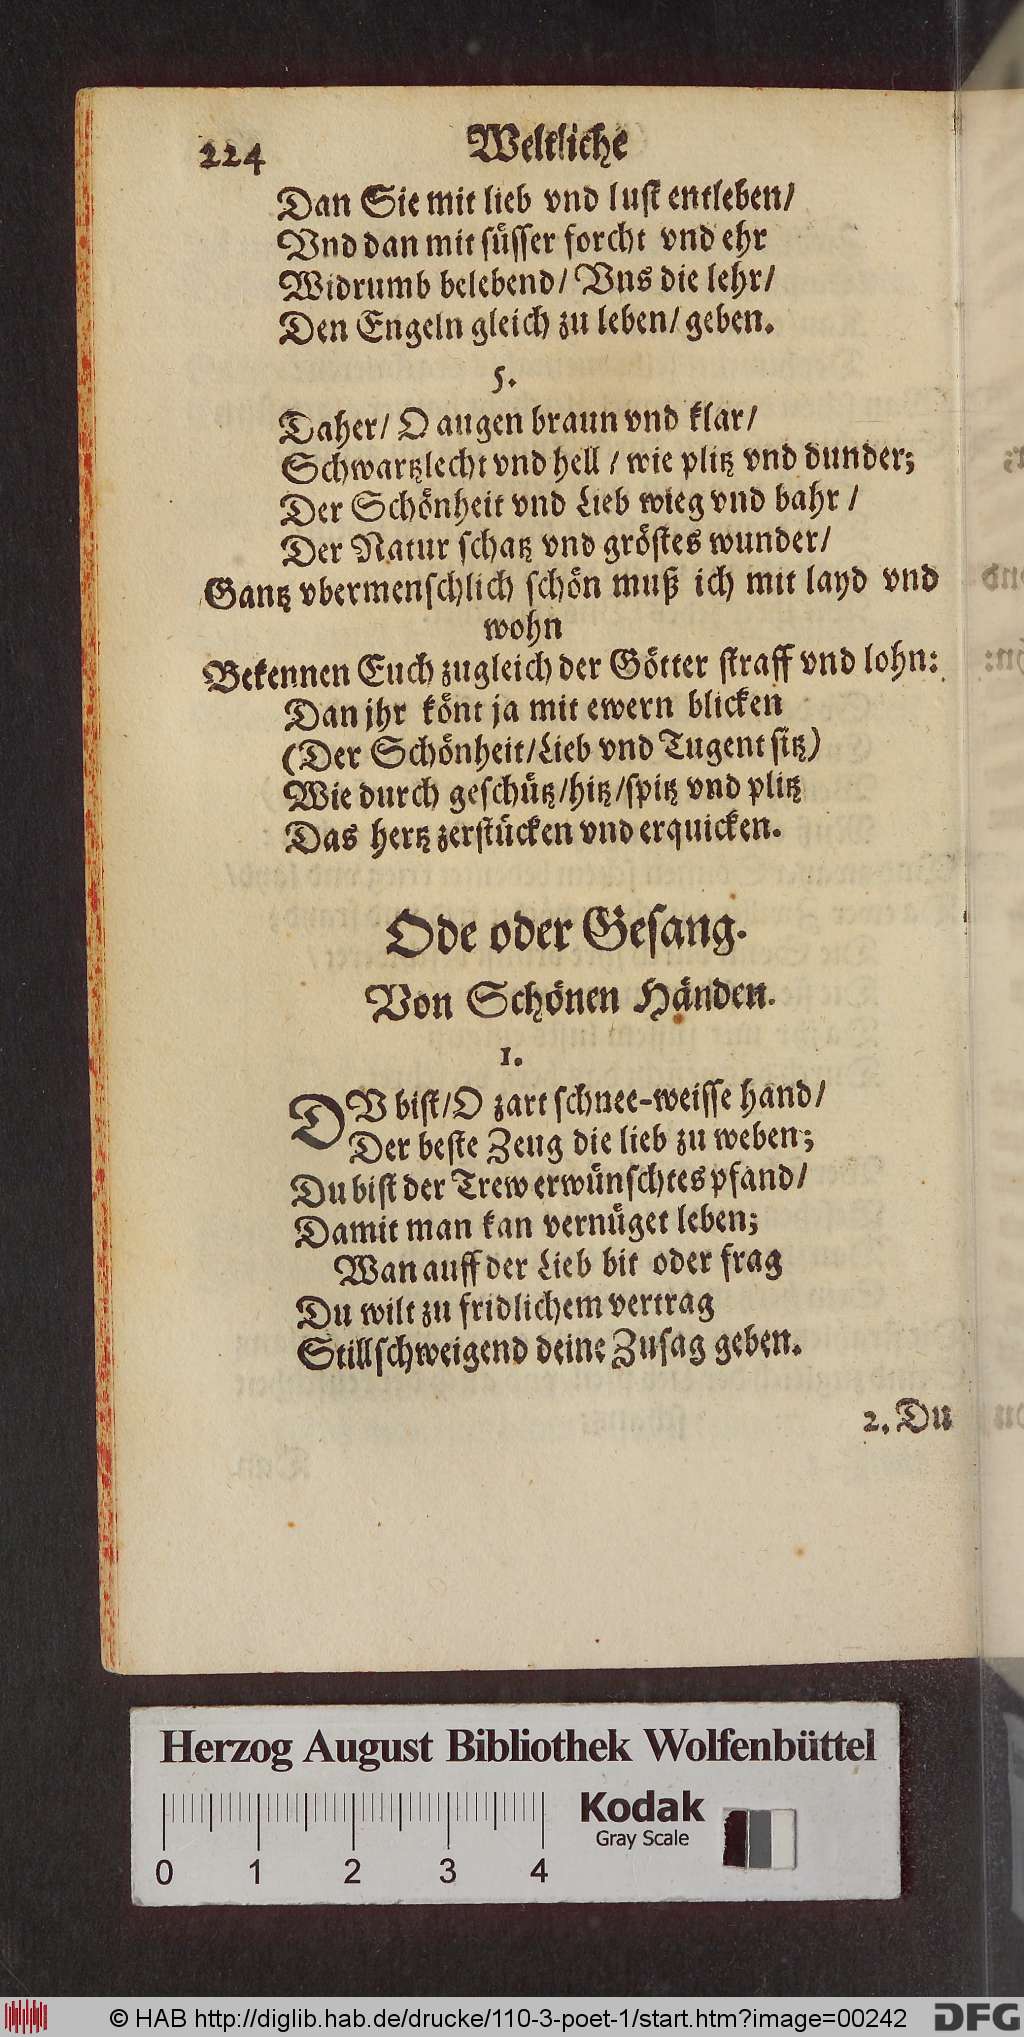 224
Weltliche
Dan Sie mit lieb vnd lust entleben/
Vnd dan mit süsser forcht vnd ehr
Widrumb belebend/ Vns die lehr/
Den Engeln gleich zu leben/ geben.
5.
Daher/ O augen braun vnd klar/
Schwartzlecht vnd hell / wie plitz vnd dunder;
Der Schönheit vnd Lieb wieg vnd bahr /
Der Natur schatz vnd gröstes wunder/
Gantz vbermenschlich schön muß ich mit layd vnd
wohn
Bekennen Euch zugleich der Götter straff vnd lohn:
Dan jhr könt ja mit ewern blicken
(Der Schönheit/Lieb vnd Tugent sitz)
Wie durch geschütz/hitz/spitz vnd plitz
Das hertz zerstücken vnd erquicken.
Ode oder Gesang.
Von Schönen Händen.
1.
DV bist/O zart schnee-weisse hand/
Der beste Zeug die lieb zu weben;
Du bist der Trew erwünschtes pfand/
Damit man kan vernüget leben;
Wan auff der Lieb bit oder frag
Du wilt zu fridlichem vertrag
Stillschweigend deine Zusag geben.
2. Du
Herzog August Bibliothek Wolfenbüttel
Kodak
Gray Scale
0 1 2 3 4
© HAB http://diglib.hab.de/drucke/110-3-poet-1/start.htm?image=00242
DFG